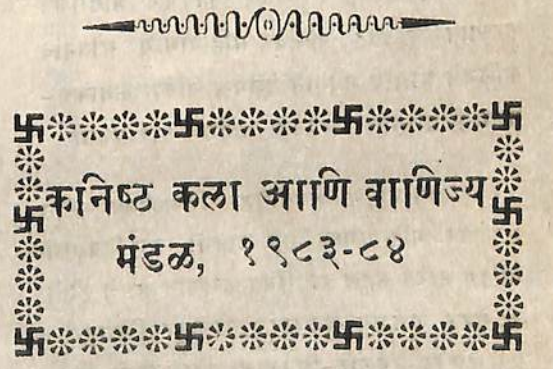 कनिष्ठ कला आणि वाणिज्य
मंडळ, १९८३-८४